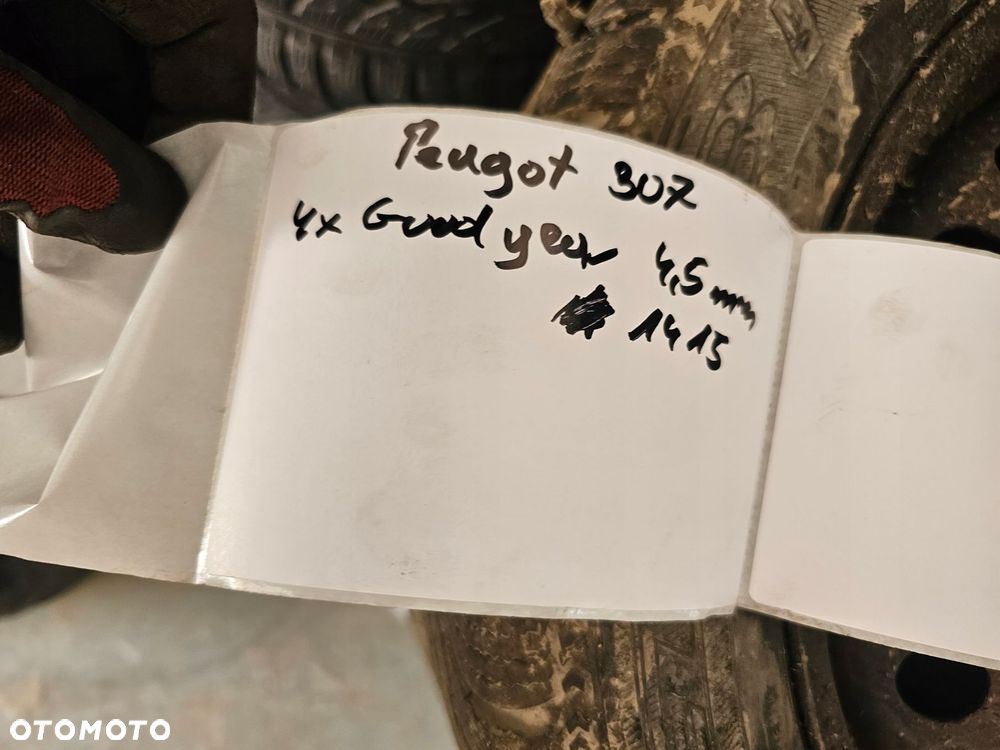 Peugot 307
4x Goodyear 4,5mm
1415
OTOMOTO